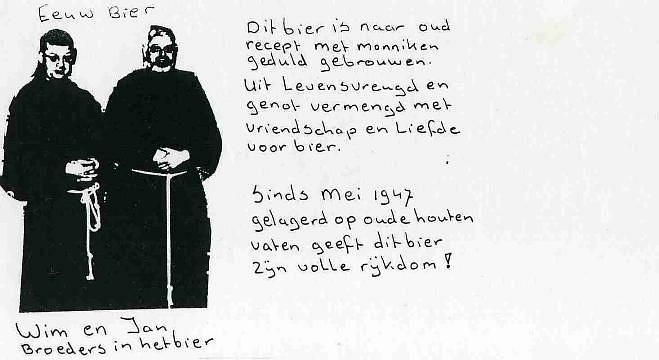 Eeuw Bier
Dit bier is naar oud
recept met monniken
geduld gebrouwen.
Uit Levensvreugd en
genot vermengd met
vriendschap en Liefde
voor bier.
Sinds Mei 1947
gelagerd op oude houten
vaten geeft dit bier
zijn volle rijkdom!
Wim en Jan
Broeders in het bier